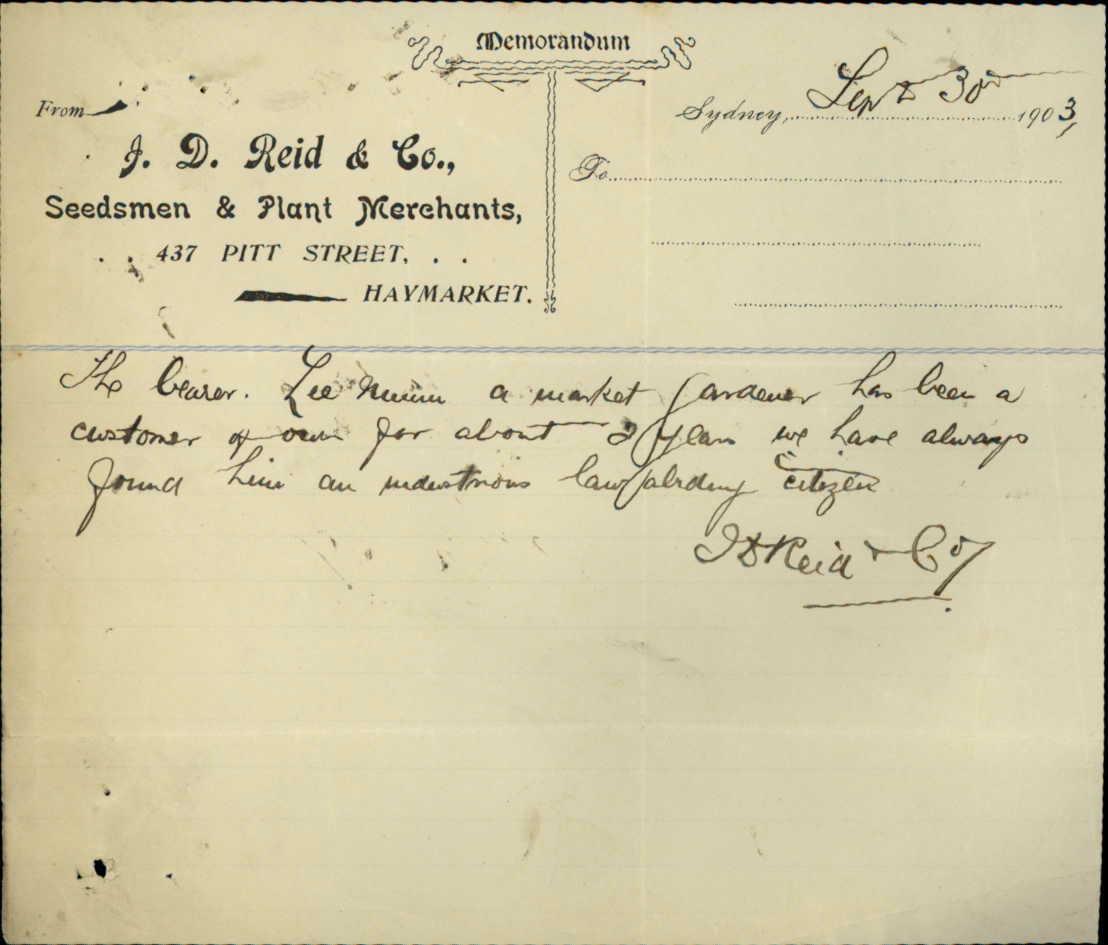 Memorandum
From
Sydney, Sept 30 1903,
J. D. Reid & Co.,
To
Seedsmen & Plant Merchants,
. . 437 PITT STREET, . .
HAYMARKET.
The bearer. Lee a market Gardener has been a
customer of ours for about 2 years we have always
found him an industrious law abiding citizen
J D Reid & Co